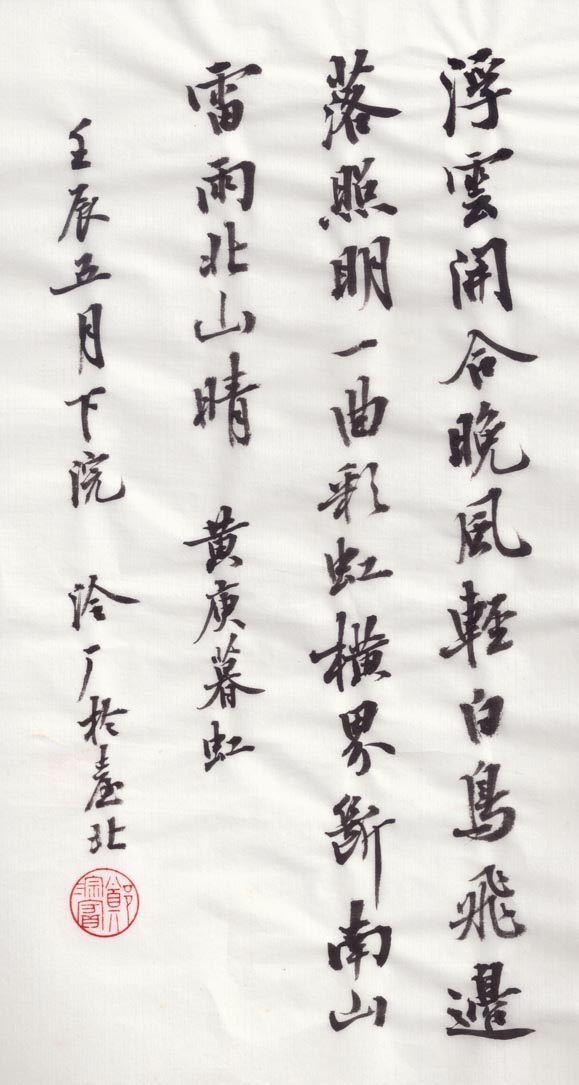 浮雲開合晚風輕白鳥飛邊
落照明一曲彩虹橫界斷南山
雷雨北山晴 黃庚暮虹
壬辰五月下浣 泠厂於臺北